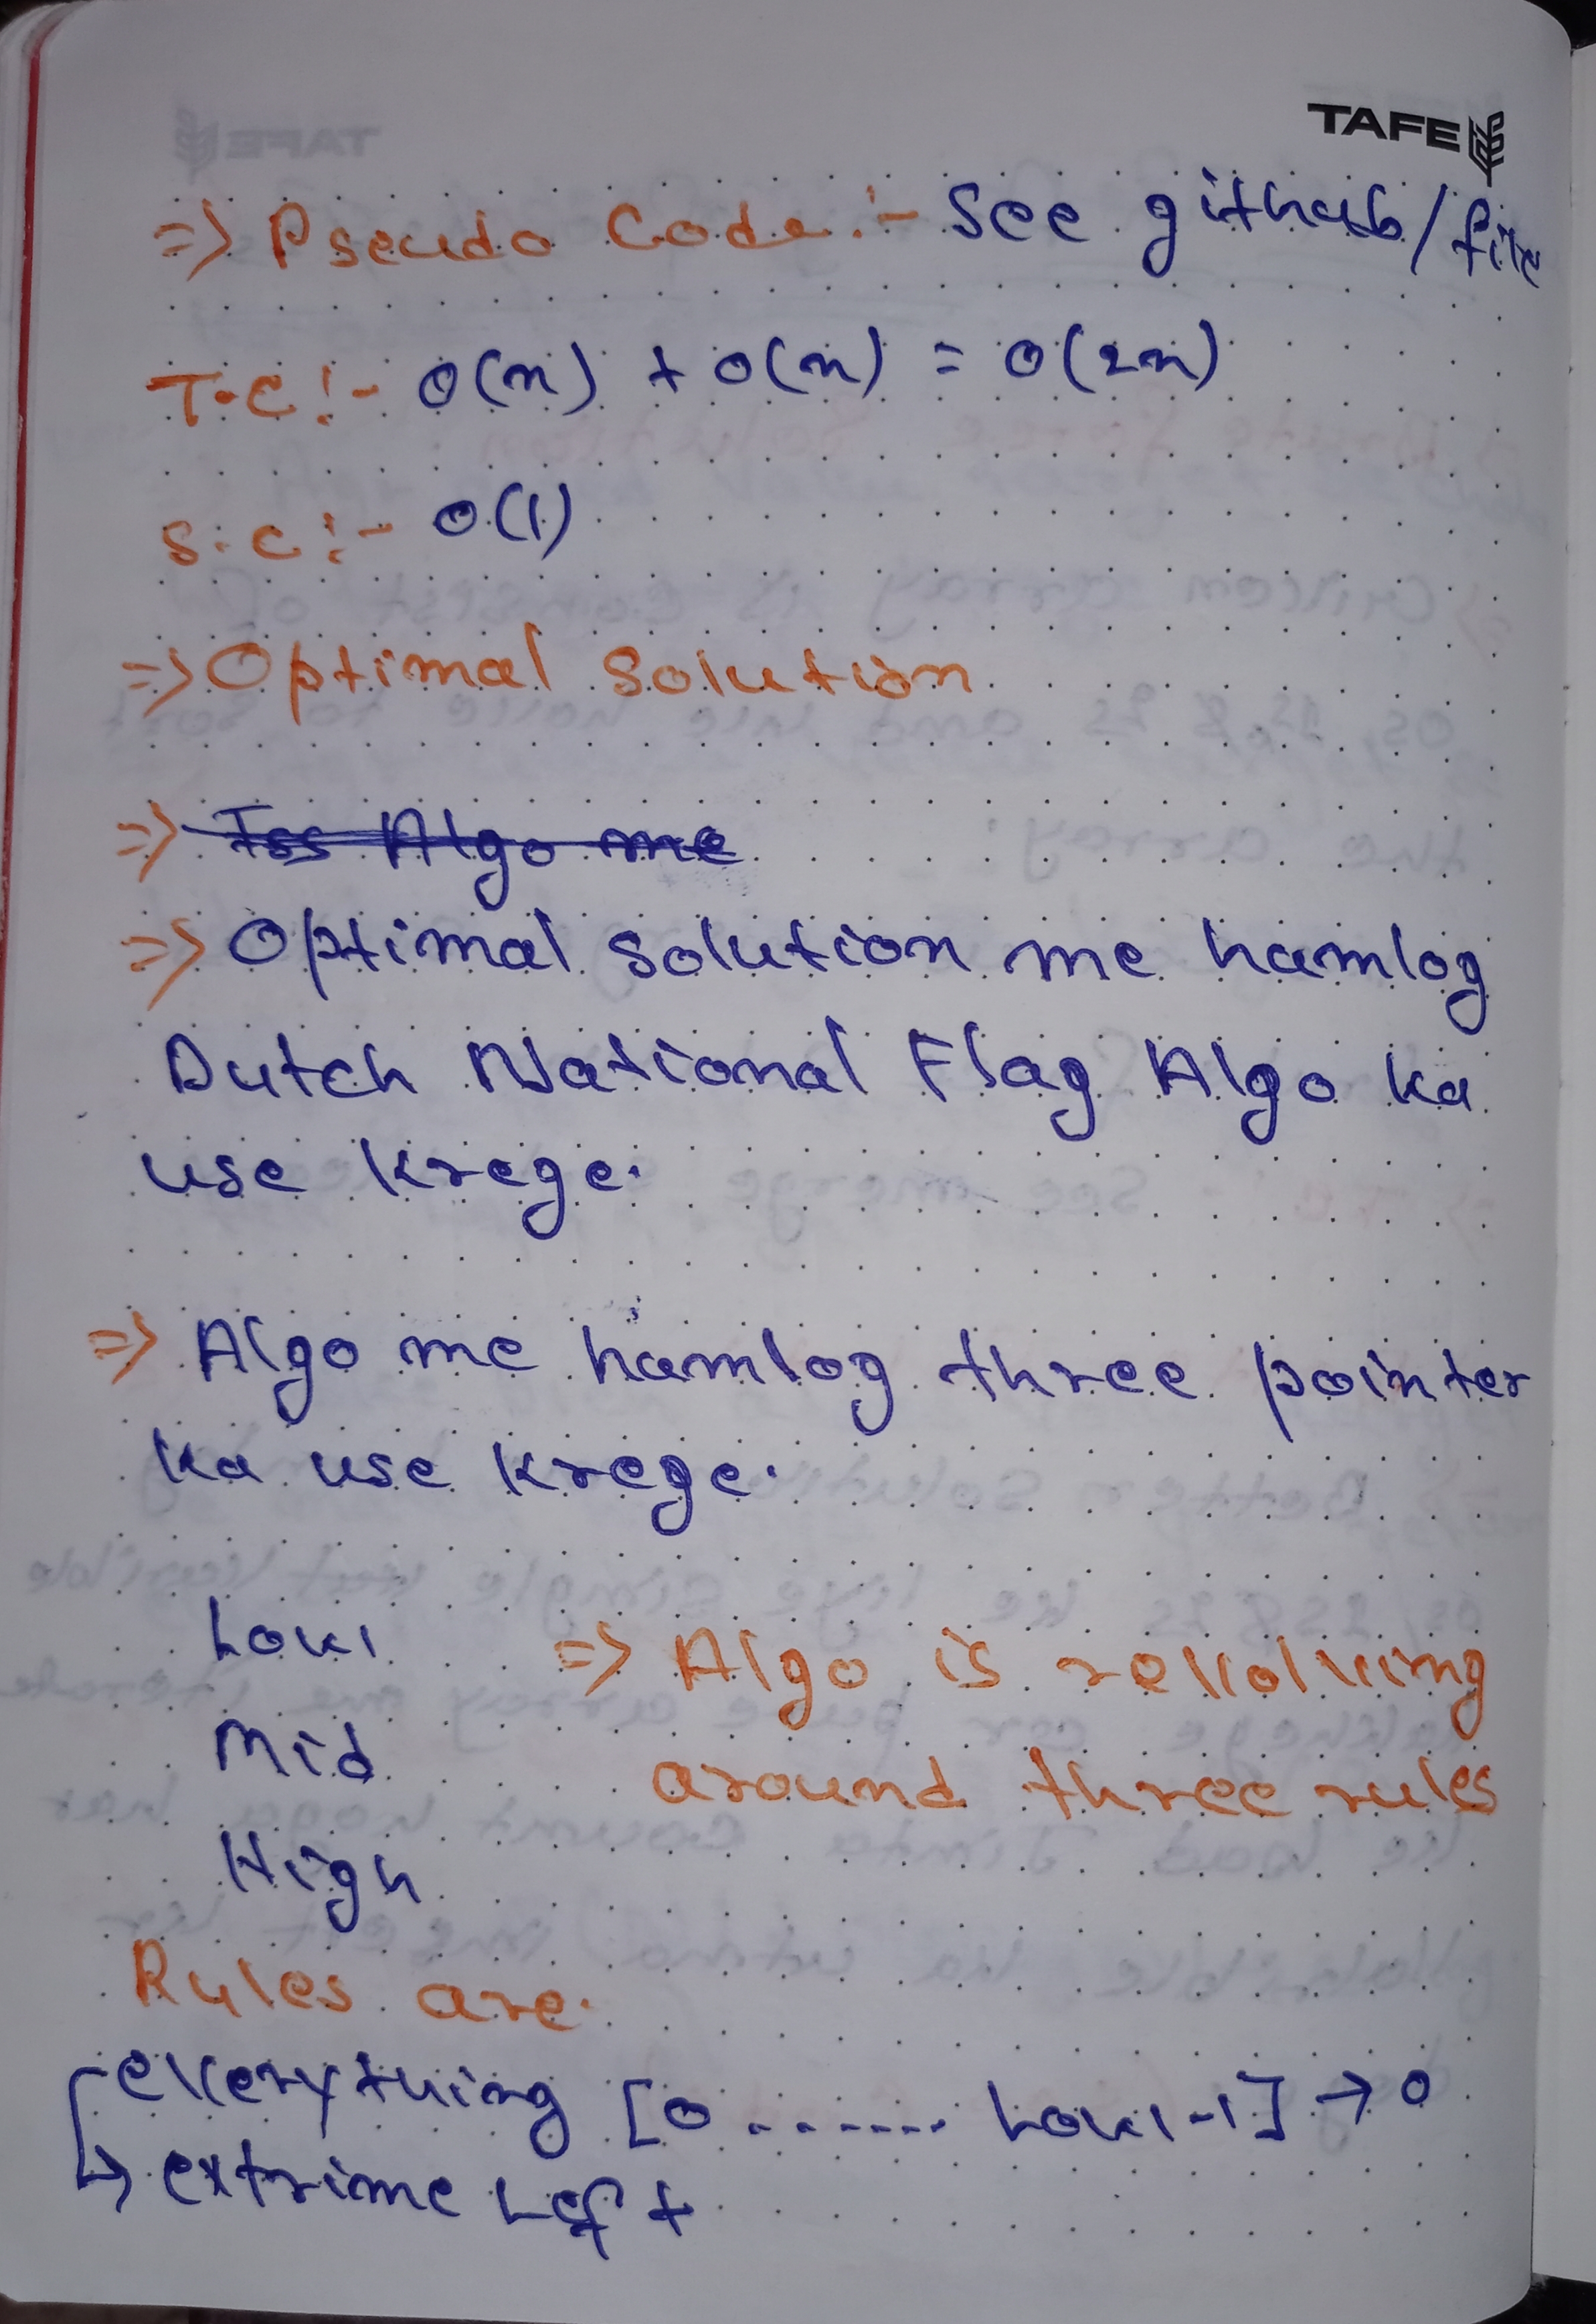 TAFE
=> Pseudo Code :- See github/file
T.C :- O(n) + O(n) = O(2n)
S.C :- O(1)
=> Optimal Solution
=> Iss Algo me
=> Optimal solution me hamlog
Dutch National Flag Algo ka
use krege.
=> Algo me hamlog three pointer
ka use krege.
Low
=> Algo is revolving
Mid
around three rules
High
Rules are.
everything [0 ....... Low-1] → 0
↳ extrime Left